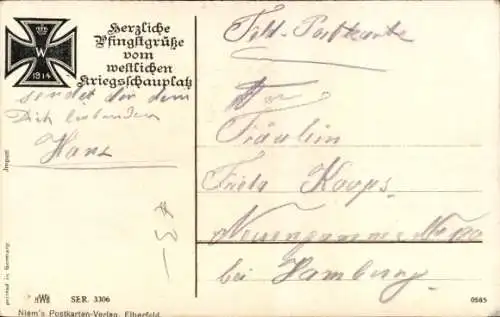 W
1914
Herzliche
Pfingstgrüße
vom
westlichen
Kriegsschauplatz
sendet dir dein
Dich liebenden
Hans
Feld-Postkarte
An
Fräulein
Frida Koops
Neuengamme
bei Hamburg
Import
printed in Germany
SER. 3306
Niem's Postkarten-Verlag, Elberfeld
0565